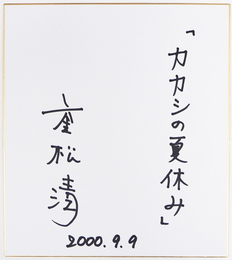 「カカシの夏休み」
重松清
2000.9.9